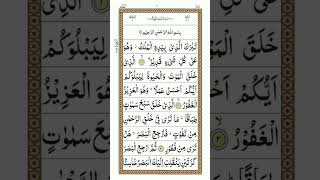 بِسْمِ اللّٰهِ الرَّحْمٰنِ الرَّحِيْمِ
تَبٰرَكَ الَّذِىْ بِيَدِهِ الْمُلْكُ ۫ وَهُوَ
عَلٰى كُلِّ شَىْءٍ قَدِيْرُ ۙ﴿۱﴾ اۨلَّذِىْ
خَلَقَ الْمَوْتَ وَالْحَيٰوةَ لِيَبْلُوَكُمْ
اَيُّكُمْ اَحْسَنُ عَمَلًا ؕ وَهُوَ الْعَزِيْزُ
الْغَفُوْرُ ۙ﴿۲﴾ الَّذِىْ خَلَقَ سَبْعَ سَمٰوٰتٍ
طِبَاقًا ؕ مَا تَرٰى فِىْ خَلْقِ الرَّحْمٰنِ
مِنْ تَفٰوُتٍ ؕ فَارْجِعِ الْبَصَرَ ۙ هَلْ
تَرٰى مِنْ فُطُوْرٍ ﴿۳﴾ ثُمَّ ارْجِعِ الْبَصَرَ
كَرَّتَيْنِ يَنْقَلِبْ اِلَيْكَ الْبَصَرُ خَاسِئًا